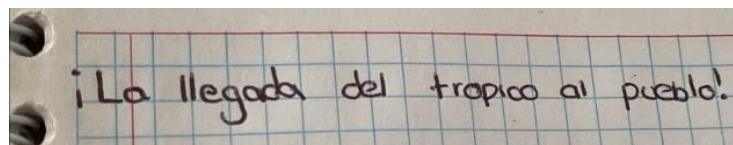 ¡La llegada del tropico al pueblo!